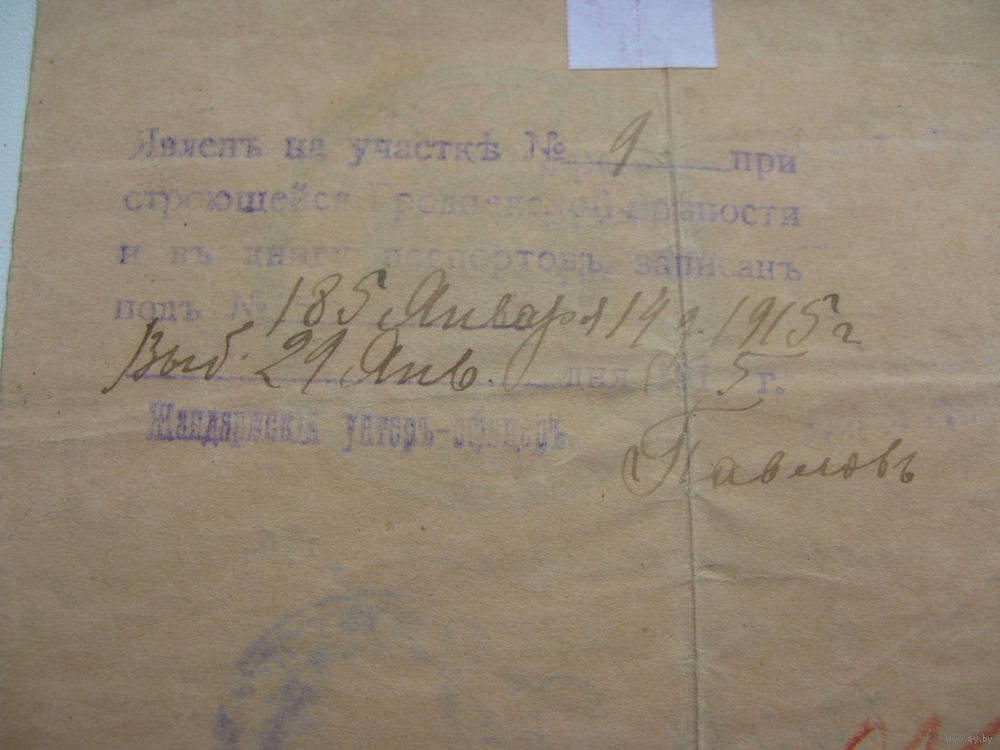 Явленъ на участкѣ № 9 при
строющейся Гродненской крѣпости
и въ книгу паспортовъ записанъ
подъ № 185 Января 14 д. 1915 г
Выб. 29 Янв. дня 1915 г.
Жандармскій унтеръ-офицеръ
Павловъ
www.ay.by